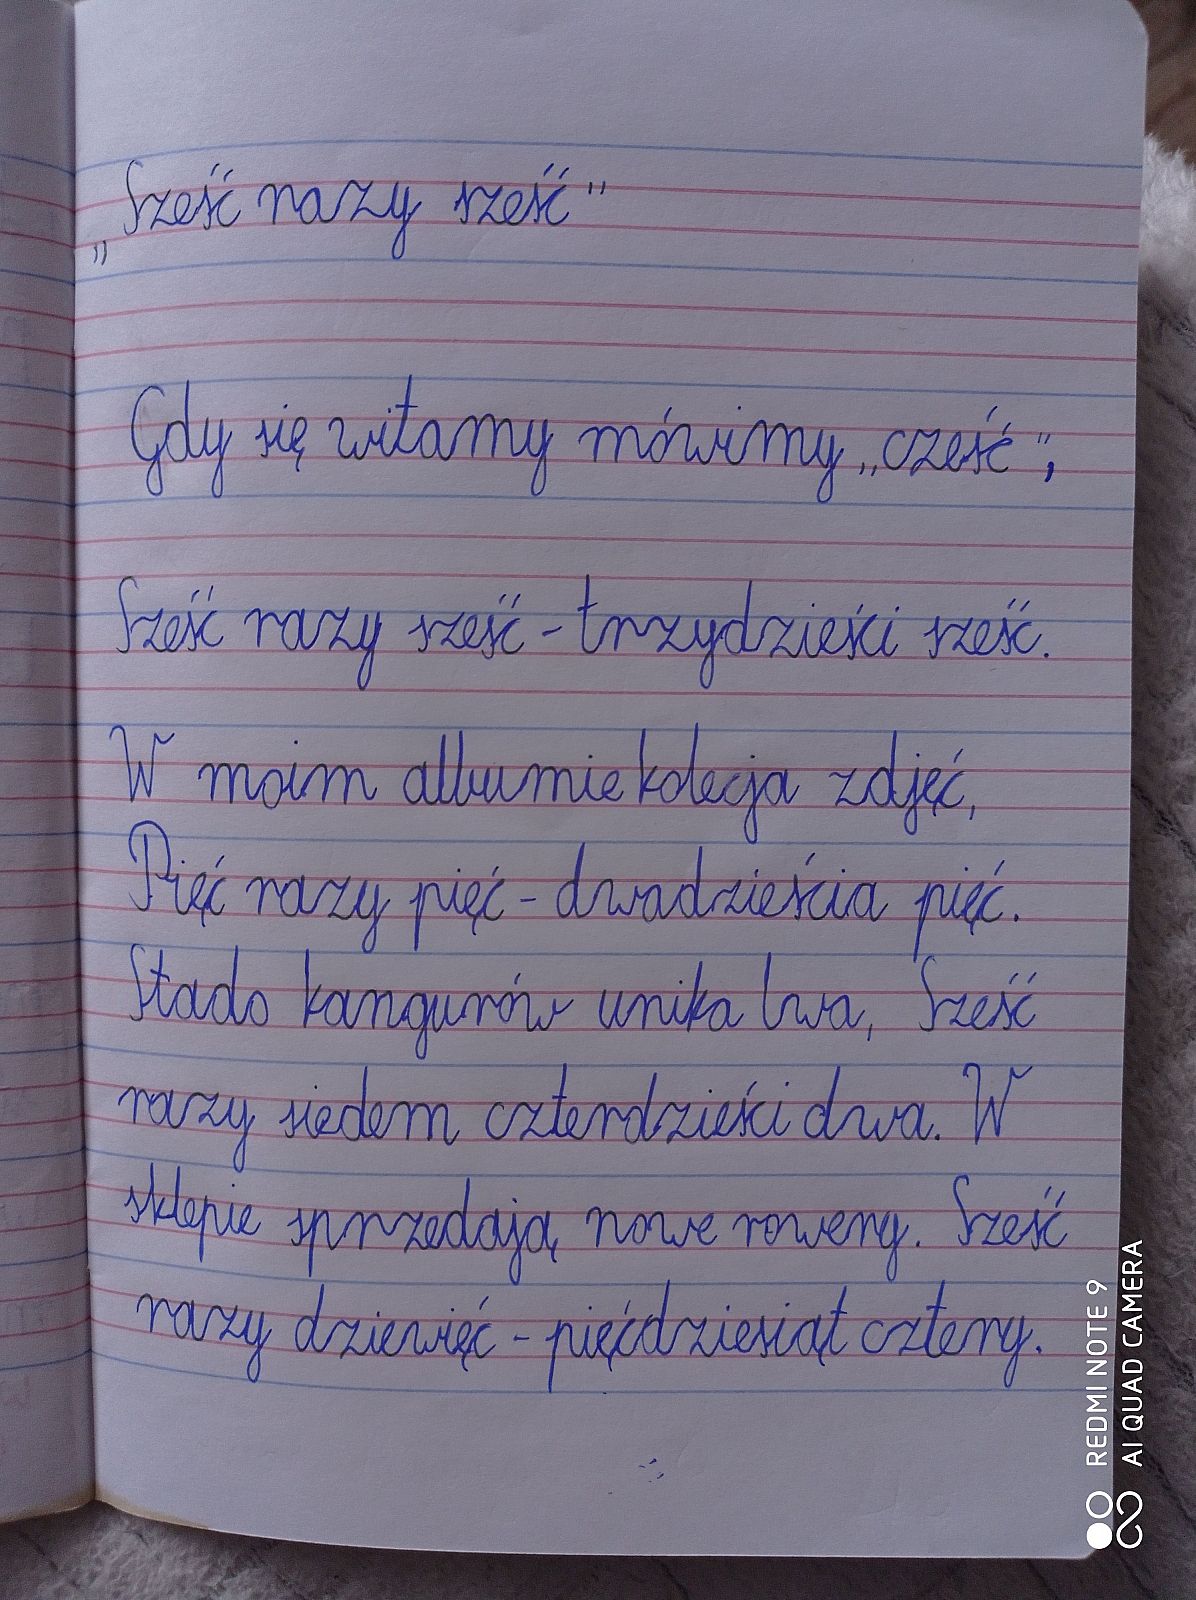 „Sześć razy sześć"
Gdy się witamy mówimy „cześć",
Sześć razy sześć - trzydzieści sześć.
W moim albumie kolecja zdjęć,
Pięć razy pięć - dwadzieścia pięć.
Stado kangurów unika lwa, Sześć
razy siedem czterdzieści dwa. W
sklepie sprzedają nowe rowery. Sześć
razy dziewięć - pięćdziesiąt cztery.
REDMI NOTE 9
AI QUAD CAMERA